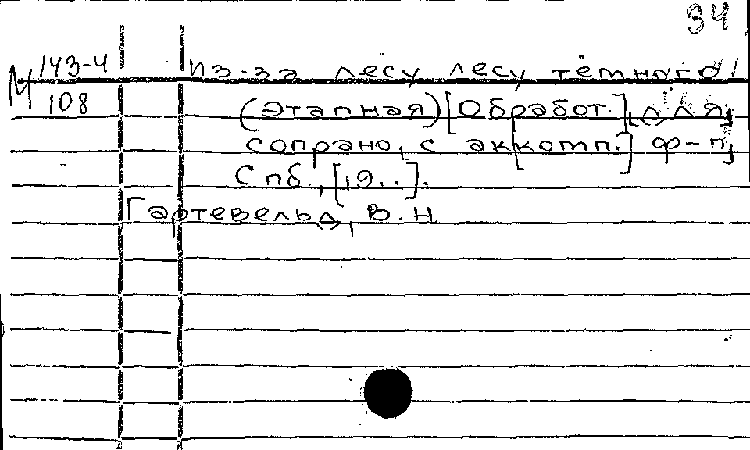 34
М 143-4
108
Из-за лесу лесу тёмного!
(Этапная) [Обработ.], для
сопрано, с ак[комп.] ф-п.
Спб., [19..].
Гартевельд, В. Н.